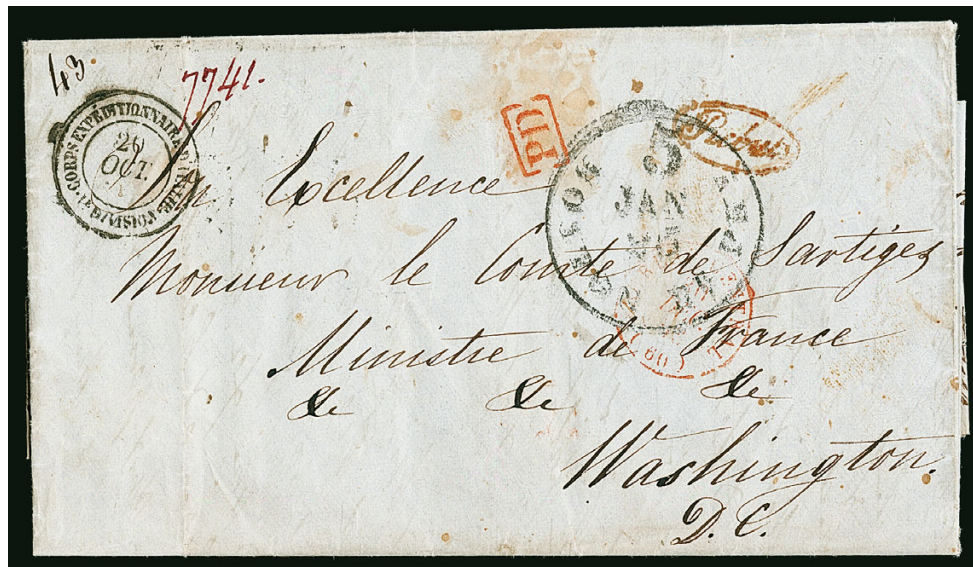 43.
7741.
CORPS EXPÉDITIONNAIRE
1e DIVISION
29
OCT.
PD
Debours
5
JAN
BOSTON BR. PKT
(60)
Son Excellence
Monsieur le Comte de Sartiges
Ministre de France
&c &c &c
Washington.
D.C.